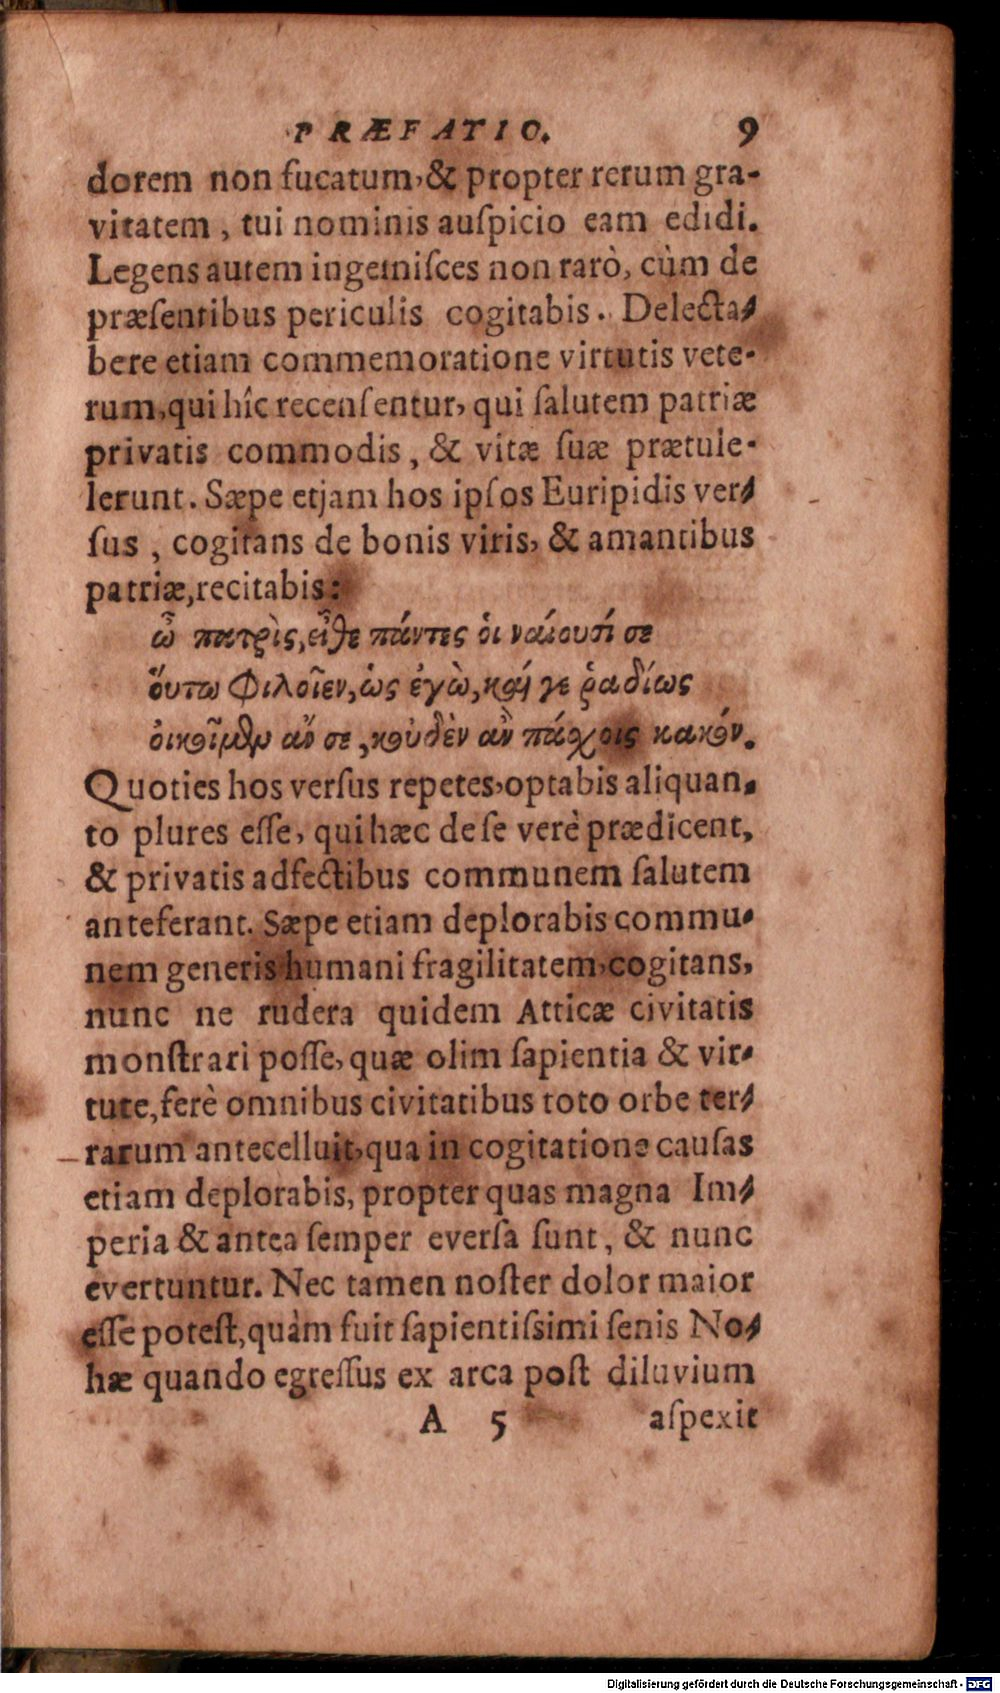 PRÆFATIO. 9
dorem non fucatum, & propter rerum gra-
vitatem, tui nominis auſpicio eam edidi.
Legens autem ingemiſces non rarò, cùm de
præſentibus periculis cogitabis. Delecta-
bere etiam commemoratione virtutis vete-
rum, qui hîc recenſentur, qui ſalutem patriæ
privatis commodis, & vitæ ſuæ prætule-
lerunt. Sæpe etjam hos ipſos Euripidis ver-
ſus, cogitans de bonis viris, & amantibus
patriæ, recitabis:
ὦ πατρὶς, εἶθε πάντες ὁι ναίουσί σε
ὅυτω φιλοῖεν, ὡς ἐγὼ, καί γε ῥαδίως
ὀικοῖμθμ ἄν σε, κουδὲν ἂν πάχοις κακόν.
Quoties hos verſus repetes, optabis aliquan-
to plures eſſe, qui hæc de ſe verè prædicent,
& privatis adfectibus communem ſalutem
anteferant. Sæpe etiam deplorabis commu-
nem generis humani fragilitatem, cogitans,
nunc ne rudera quidem Atticæ civitatis
monſtrari poſſe, quæ olim ſapientia & vir-
tute, ferè omnibus civitatibus toto orbe ter-
rarum antecelluit, qua in cogitatione cauſas
etiam deplorabis, propter quas magna Im-
peria & antea ſemper everſa ſunt, & nunc
evertuntur. Nec tamen noſter dolor maior
eſſe poteſt, quàm fuit ſapientiſsimi ſenis No-
hæ quando egreſſus ex arca poſt diluvium
A 5 aſpexit
Digitalisierung gefördert durch die Deutsche Forschungsgemeinschaft - DFG